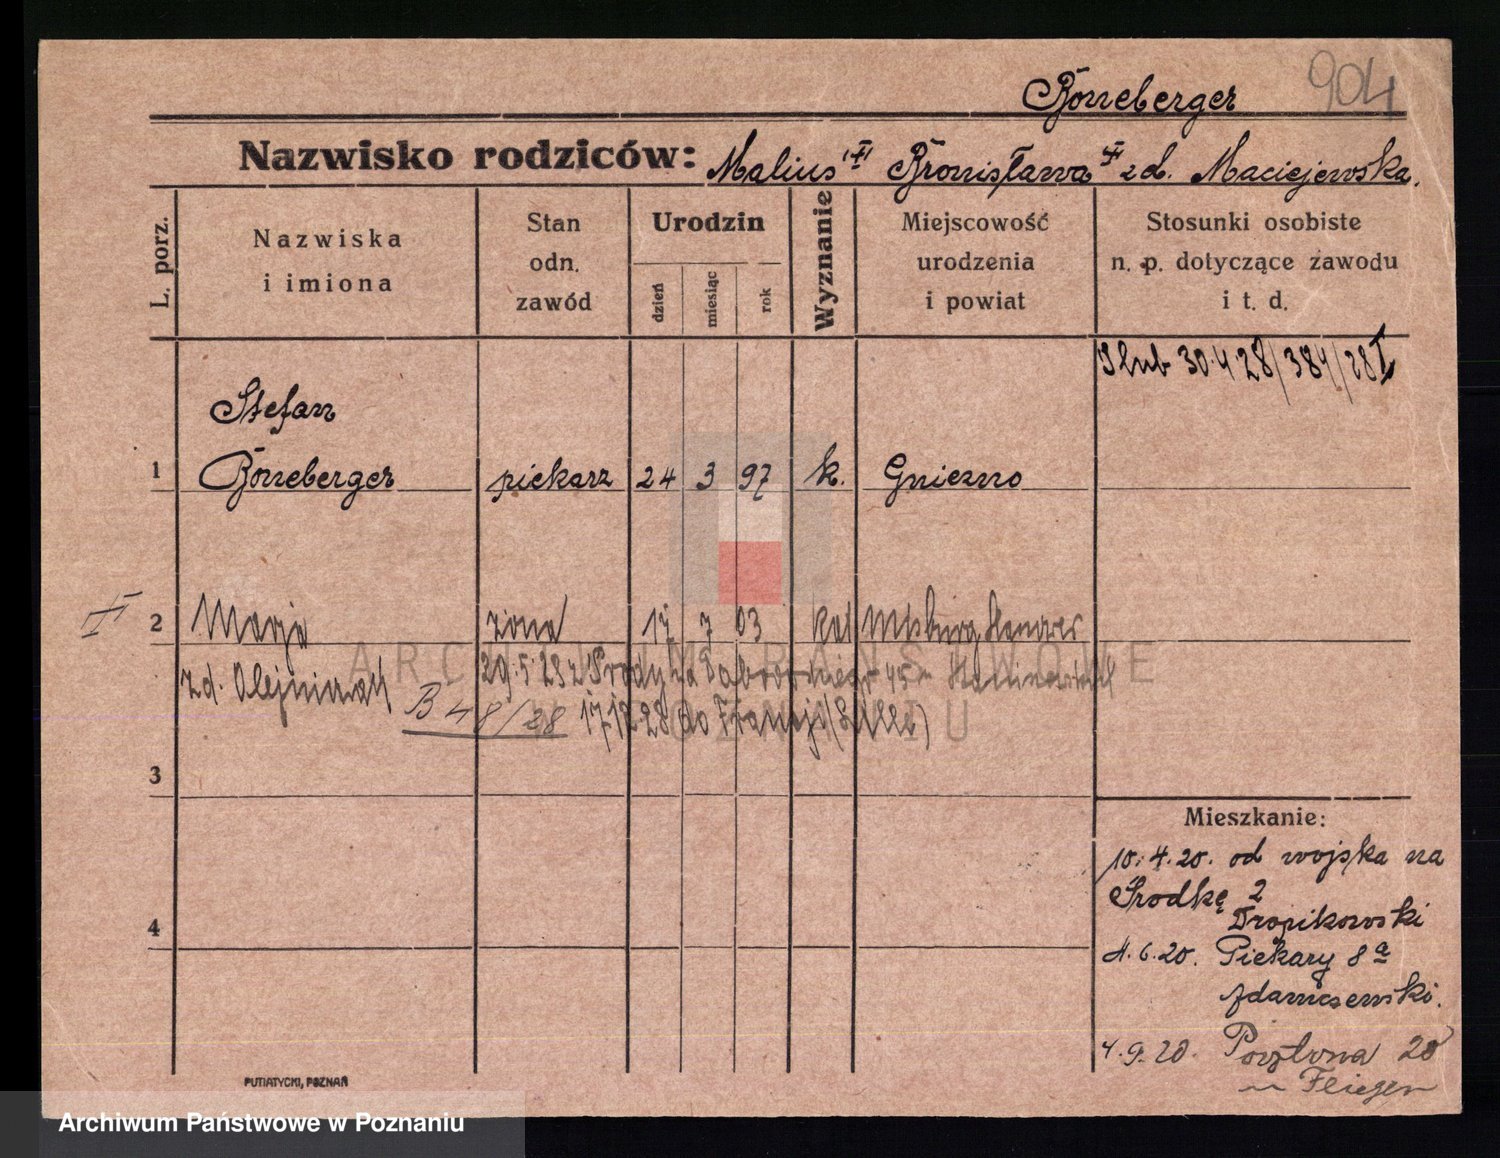 904
Bonneberger
Nazwisko rodziców: Malius Bronisława zd. Maciejewska.
L. porz.
Nazwiska
i imiona
Stan
odn.
zawód
Urodzin
dzień
miesiąc
rok
Wyznanie
Miejscowość
urodzenia
i powiat
Stosunki osobiste
n. p. dotyczące zawodu
i t. d.
Ślub 30.4.28/384/28 I
Stefan
1 Bonneberger piekarz 24 3 97 k. Gniezno
2 Marja żona 17 7 03 kat Hanower
zd. Olejniczak 29.5.23 z Środy
B 48/28 17.12.28 do Francji (Lille)
3
4
Mieszkanie:
10.4.20. od wojska na
Środkę 2
4.6.20. Piekary 8a
Adamczewski.
4.9.20. 20
Fliegen
PUTIATYCKI, POZNAŃ
ARCHIWUM PAŃSTWOWE
W POZNANIU
Archiwum Państwowe w Poznaniu